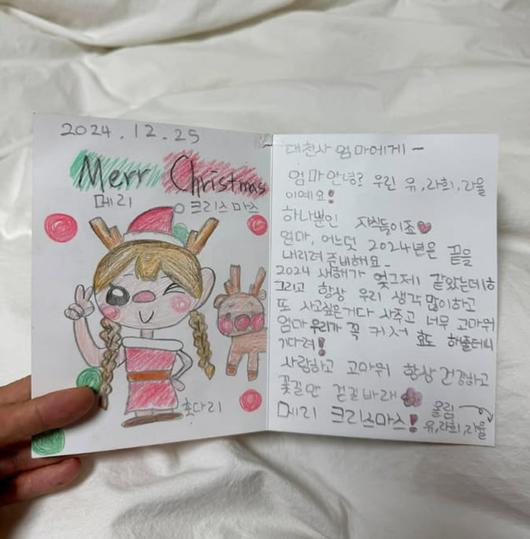 2024.12.25
Merr Christmas
메리 크리스마스
대천사 엄마에게 ~
엄마 안녕? 우린 유,라희,라율
이예요!
하나뿐인 자식들이죠
엄마, 어느덧 2024년은 끝을
내리려 준비해요~
2024 새해가 엊그제 같았는데
그리고 항상 우리 생각 많이하고
또 사고싶은거 다 사주고 너무 고마워
엄마 우리가 꼭 커서 효도 하울테니
기다려!
사랑하고 고마워 항상 건강하고
꽃길만 걷길바래
메리 크리스마스! 올림
유,라희,라율